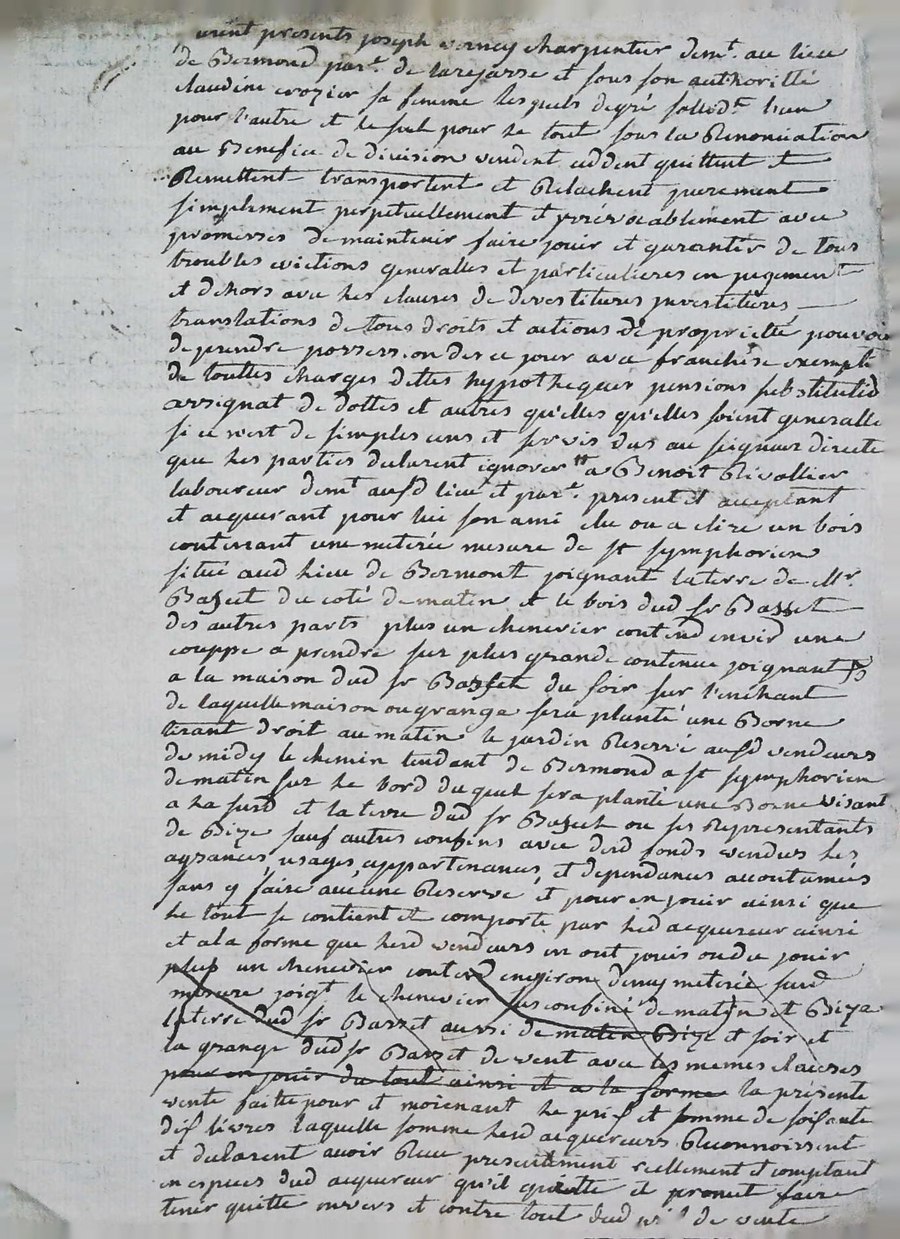 urent presents joseph verney charpentier demt. au lieu
de Bermond part. de larajasse et sous son authoritté
claudine crozier sa femme lesquels degré sollidt. l'un
pour l'autre et le seul pour le tout sous la Renonciation
au Benefice de division vendent ceddent quittent et
Remettent transportent et Relachent purement
simplement perpetuellement et yrrévocablement avec
promesses de maintenir faire jouir et garantir de tous
troubles evictions generalles et particulieres en jugement
et dehors avec les clauses de devestitures jnvestitures
translations de tous droits et actions de propriétté pouvoir
de prendre possession des ce jour avec franchise exempte
de touttes charges dettes hypotheques pensions substitutio
assignat de dottes et autres qu'elles qu'elles soient generalle
si ce n'est de simples cens et servis dus au seigneur directe
que les parties declarent ignorer a Benoit Rivollier
laboureur demt ausd lieu et part. present et acceptant
et acquerant pour lui son ami elu ou a elire un bois
contenant une meterée mesure de st symphorien
situé aud lieu de Bermont joignant la terre de Mr.
Basset du coté de matin et le bois dud sr Basset
des autres parts plus un chenevier contend environ une
couppe a prendre sur plus grande contenue joignant
a la maison dud sr Basset du soir sur l'enchant
de laquelle maison ou grange sera planté une Borne
tirant droit au matin le jardin Reservé ausd vendeurs
de midy le chemin tendant de Bermond a st symphorien
de matin sur le bord duquel sera planté une Borne visant
a la surd et la terre dud sr Basset ou ses Representants
de Bize sauf autres confins avec desd fonds vendus les
ageances, usages, appartenances, et dependances accoutumées
sans y faire aucune Reserve et pour en jouir ainsi que
le tout se contient et comporte par led acquereur ainsi
et a la forme que lesd vendeurs en ont jouis ou du jouir
plus un chenevier contend environ demy meterée surd
mesure joigt le chenevier sus confiné de matin et Bize
la terre dud sr Basset aussi de matin Bize et soir et
la grange dud sr Basset de vent avec les memes clauses
pour en jouir du tout ainsi et a la forme la présente
vente faitte pour et moienant le prix et somme de soisente
dix livres laquelle somme lesd acquereurs Reconnoissent
et declarent avoir Reçue presentement reellement et comptant
en especes dud acquereur qu'il quitte et promet faire
tenir quitte envers et contre tout dud de vente